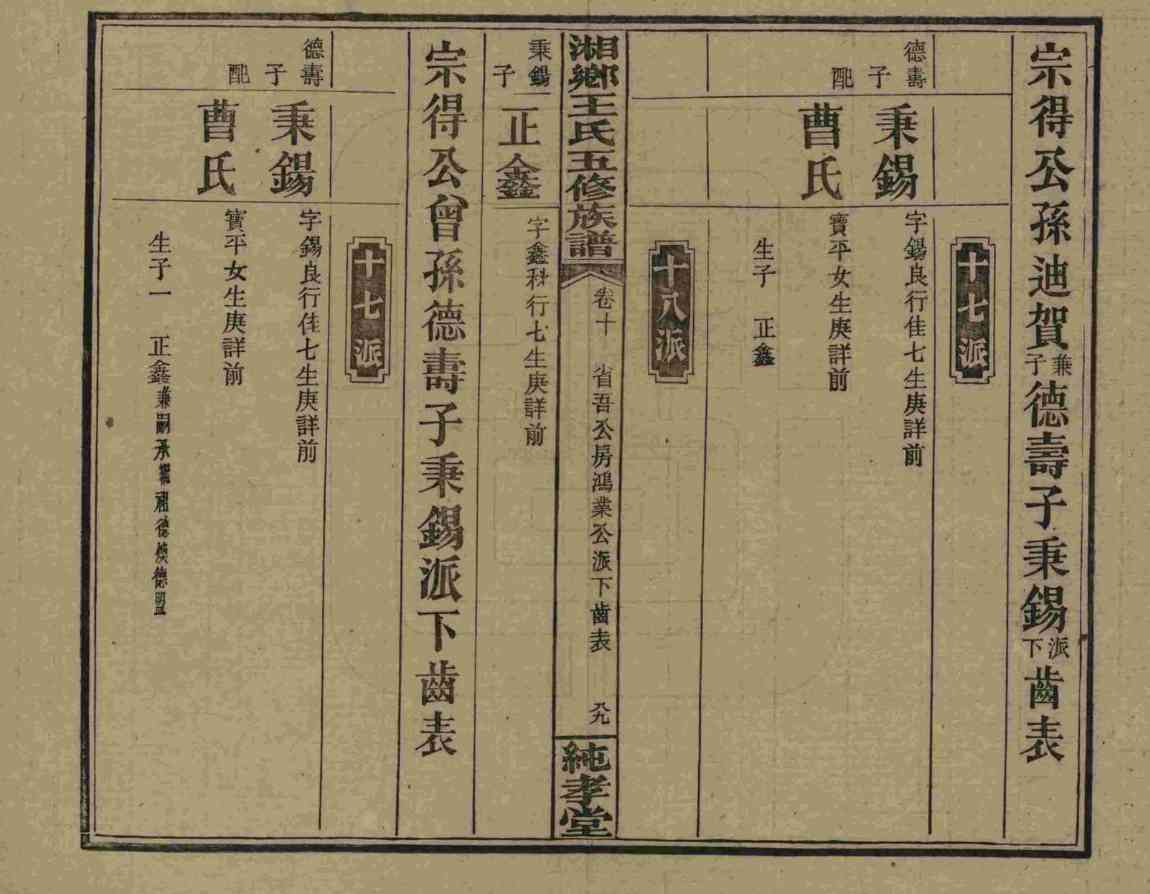 宗得公孫迪賀兼子德壽子秉錫派下齒表
十七派
德壽子
秉錫
字錫良行佳七生庚詳前
配
曹氏
寶平女生庚詳前
生子 正鑫
十八派
湘鄉王氏五修族譜
卷十 省吾公房鴻業公派下齒表 九
純孝堂
秉錫子
正鑫
字鑫秋行七生庚詳前
宗得公曾孫德壽子秉錫派下齒表
十七派
德壽子
秉錫
字錫良行佳七生庚詳前
配
曹氏
寶平女生庚詳前
生子一 正鑫兼嗣承祖德德盟